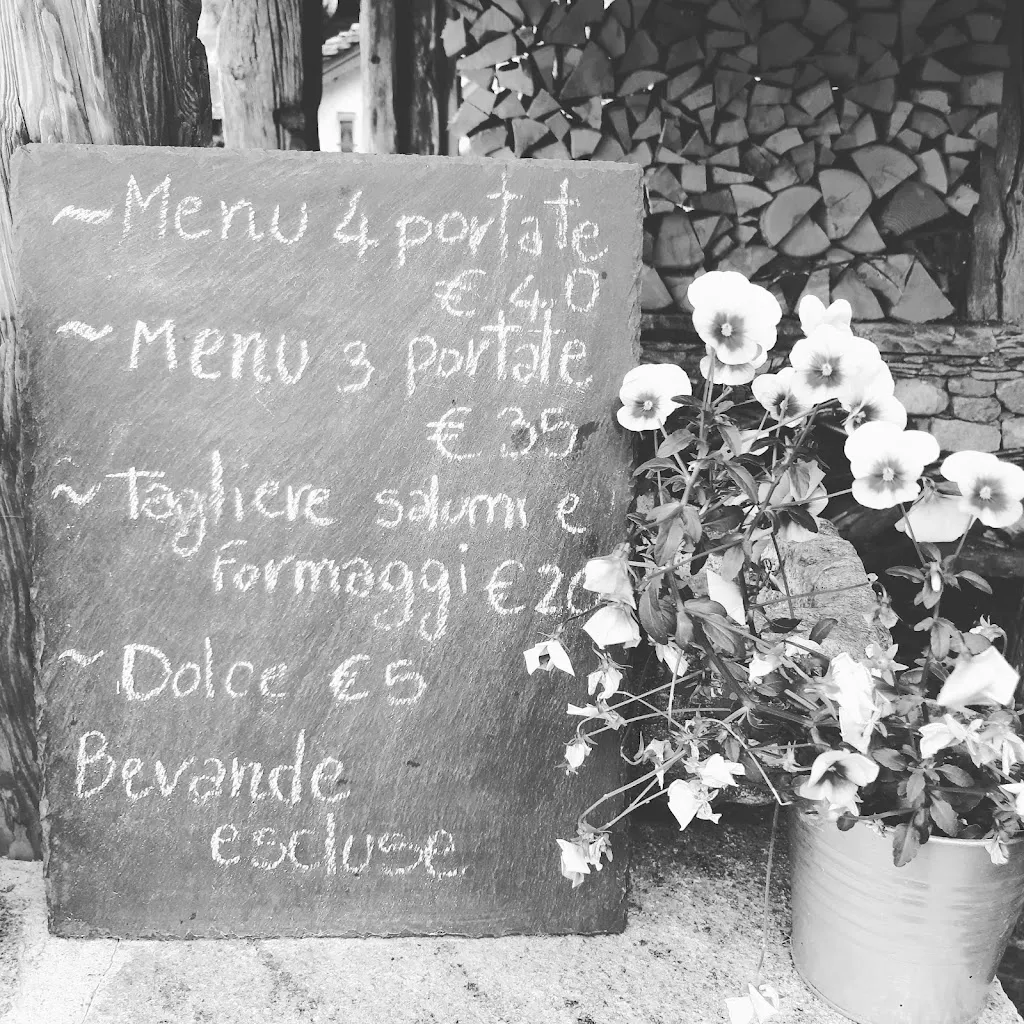 ~Menu 4 portate
€ 40
~ Menu 3 portate
€ 35
~ Tagliere salumi e
Formaggi € 20
~ Dolce € 5
Bevande
escluse